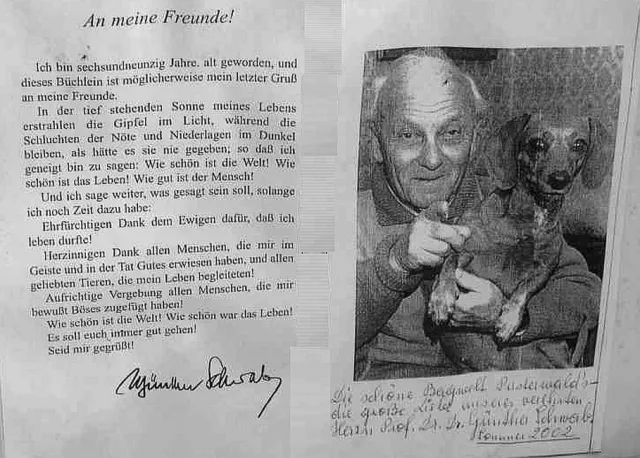 An meine Freunde!
Ich bin sechsundneunzig Jahre. alt geworden, und
dieses Büchlein ist möglicherweise mein letzter Gruß
an meine Freunde.
In der tief stehenden Sonne meines Lebens
erstrahlen die Gipfel im Licht, während die
Schluchten der Nöte und Niederlagen im Dunkel
bleiben, als hätte es sie nie gegeben; so daß ich
geneigt bin zu sagen: Wie schön ist die Welt! Wie
schön ist das Leben! Wie gut ist der Mensch!
Und ich sage weiter, was gesagt sein soll, solange
ich noch Zeit dazu habe:
Ehrfürchtigen Dank dem Ewigen dafür, daß ich
leben durfte!
Herzinnigen Dank allen Menschen, die mir im
Geiste und in der Tat Gutes erwiesen haben, und allen
geliebten Tieren, die mein Leben begleiteten!
Aufrichtige Vergebung allen Menschen, die mir
bewußt Böses zugefügt haben!
Wie schön ist die Welt! Wie schön war das Leben!
Es soll euch immer gut gehen!
Seid mir gegrüßt!
Günther Schwab
Die schöne Bergwelt Pusterwald's-
die große Liebe unseres verehrten
Herrn Prof. Dr. Dr. Günther Schwab
Sommer 2002